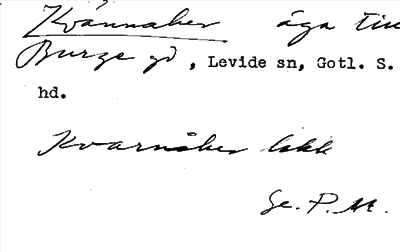 Kvännaker äga till
Burge gd, Levide sn, Gotl. S.
hd.
Kvarnåker lokk
Se. P. M.